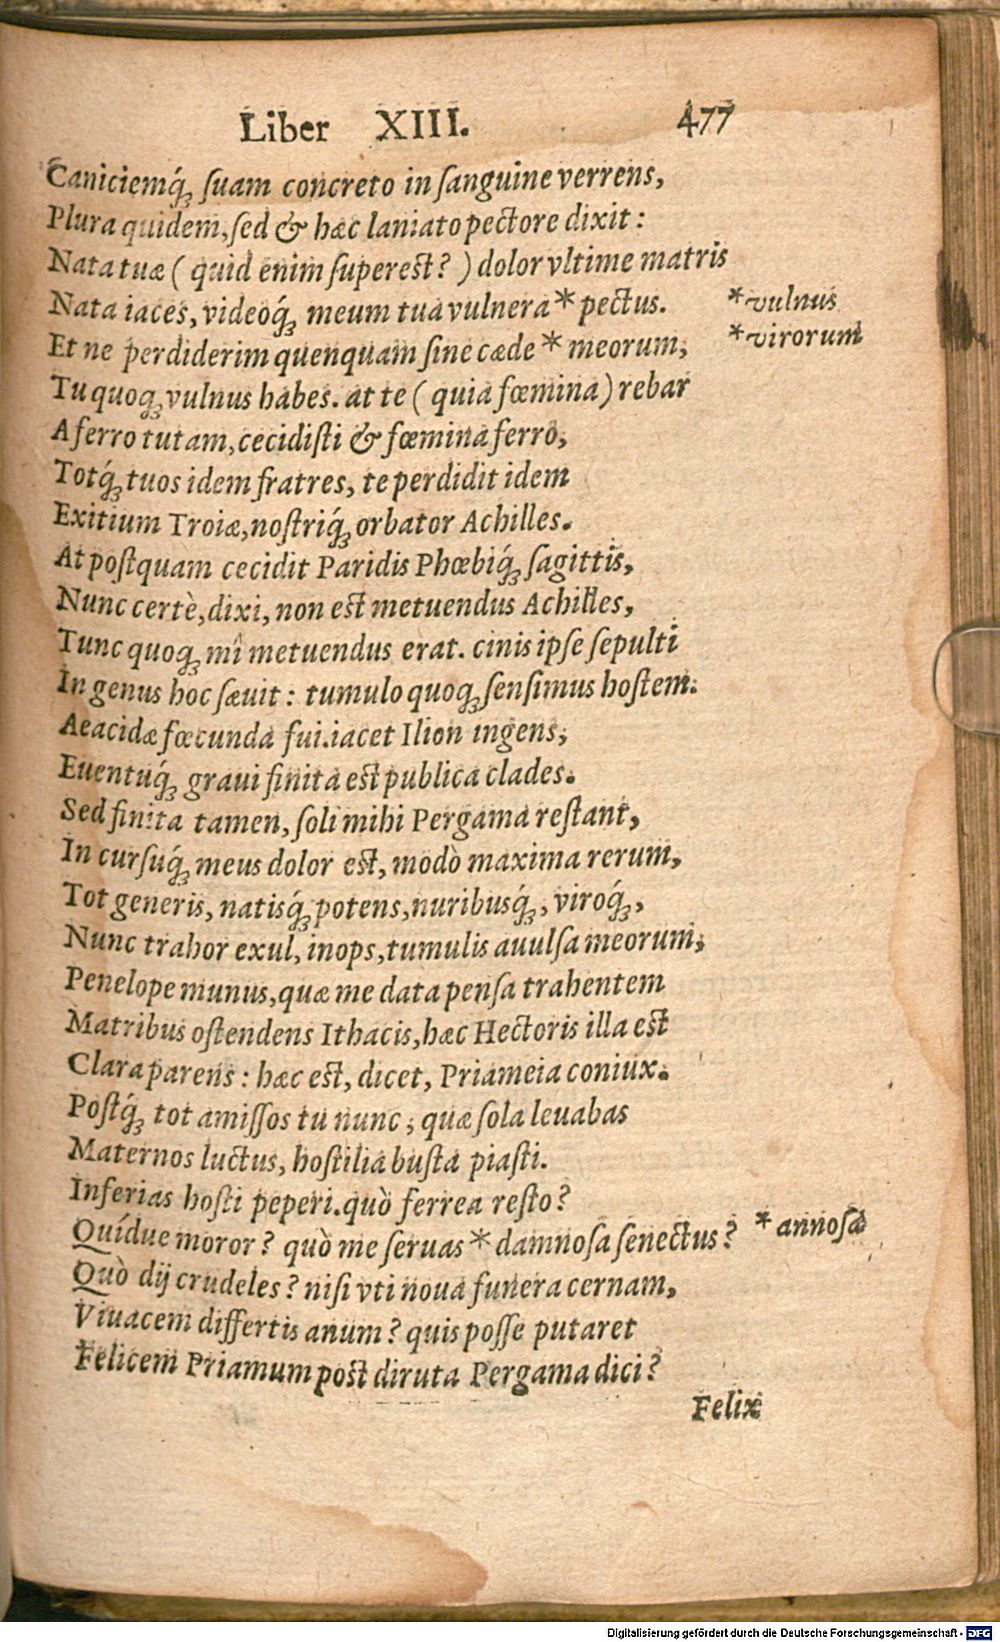 Liber XIII. 477
Caniciemq́ꝫ ſuam concreto in ſanguine verrens,
Plura quidem, ſed & hæc laniato pectore dixit:
Nata tuæ ( quid enim ſupereſt? ) dolor vltime matris
Nata iaces, videoq́ꝫ meum tua vulnera * pectus. * vulnus
Et ne perdiderim quenquam ſine cæde * meorum, * virorum
Tu quoqꝫ vulnus habes. at te ( quia fœmina) rebar
A ferro tutam, cecidiſti & fœmina ferro,
Totq́ꝫ tuos idem fratres, te perdidit idem
Exitium Troiæ, noſtriq́ꝫ orbator Achilles.
At poſtquam cecidit Paridis Phœbiq́ꝫ ſagittis,
Nunc certè, dixi, non eſt metuendus Achilles,
Tunc quoqꝫ mî metuendus erat. cinis ipſe ſepulti
In genus hoc ſæuit: tumulo quoqꝫ ſenſimus hoſtem.
Aeacidæ fœcunda fui. iacet Ilion ingens,
Euentuq́ꝫ graui finita eſt publica clades.
Sed finita tamen, ſoli mihi Pergama reſtant,
In curſuq́ꝫ meus dolor eſt, modò maxima rerum,
Tot generis, natisq́ꝫ potens, nuribusq́ꝫ, viroq́ꝫ,
Nunc trahor exul, inops, tumulis auulſa meorum,
Penelope munus, quæ me data penſa trahentem
Matribus oſtendens Ithacis, hæc Hectoris illa eſt
Clara parens: hæc eſt, dicet, Priameia coniux.
Poſtq́ꝫ tot amiſſos tu nunc, quæ ſola leuabas
Maternos luctus, hoſtilia buſta piaſti.
Inferias hoſti peperi. quò ferrea reſto?
Quídue moror? quò me ſeruas * damnoſa ſenectus? * annoſa
Quò dij crudeles? niſi vti noua funera cernam,
Viuacem differtis anum? quis poſſe putaret
Felicem Priamum poſt diruta Pergama dici?
Felix
Digitalisierung gefördert durch die Deutsche Forschungsgemeinschaft - DFG